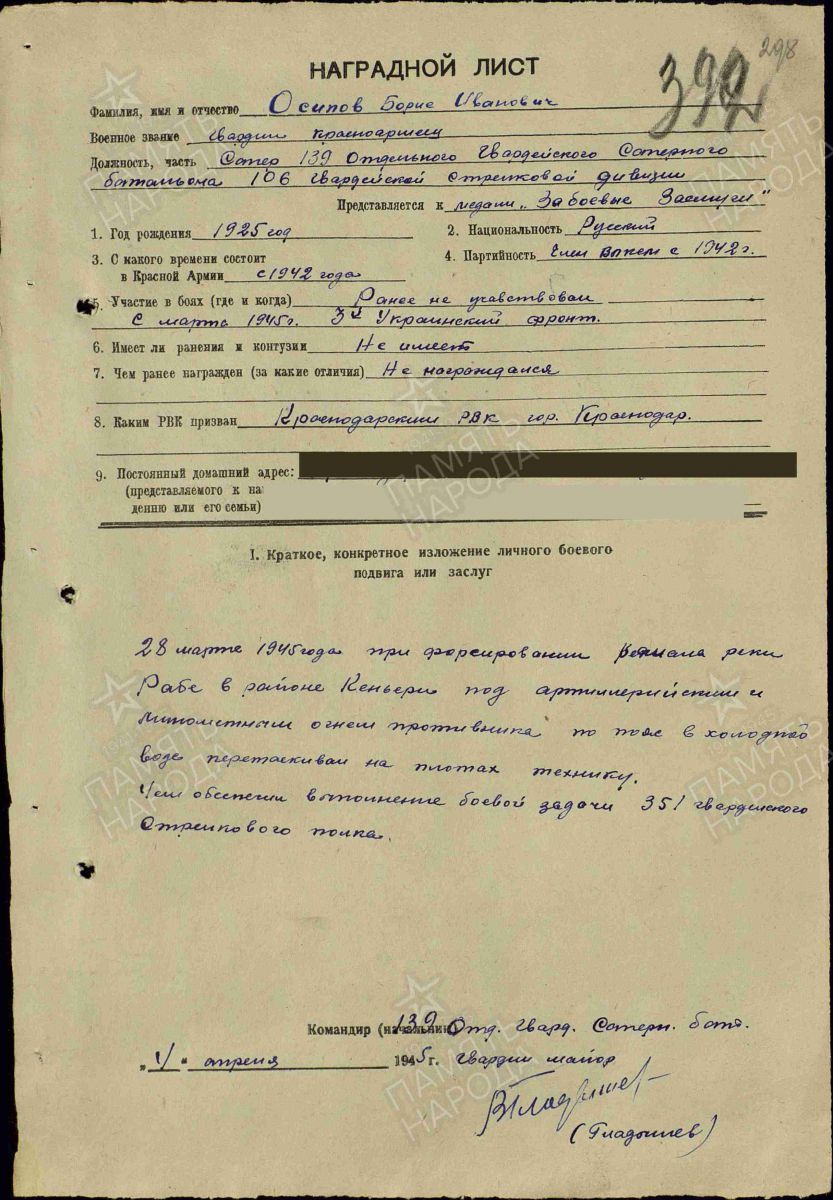 298
399
НАГРАДНОЙ ЛИСТ
Фамилия, имя и отчество Осипов Борис Иванович
Военное звание гвардии красноармеец
Должность, часть Сапер 139 Отдельного Гвардейского Саперного
батальона 106 гвардейской стрелковой дивизии
Представляется к медали "За боевые Заслуги"
1. Год рождения 1925 год 2. Национальность Русский
3. С какого времени состоит
в Красной Армии с 1942 года 4. Партийность Член ВЛКСМ с 1942 г.
5. Участие в боях (где и когда) Ранее не учавствовал
С марта 1945 г. 3й Украинский фронт.
6. Имеет ли ранения и контузии Не имеет
7. Чем ранее награжден (за какие отличия) Не награждался
8. Каким РВК призван Краснодарским РВК гор. Краснодар.
9. Постоянный домашний адрес:
(представляемого к на
дению или его семьи)
I. Краткое, конкретное изложение личного боевого
подвига или заслуг
28 марта 1945 года при форсировании канала реки
Рабе в районе Кеньери под артиллерийским и
минометным огнем противника по пояс в холодной
воде перетаскивал на плотах технику.
Чем обеспечил выполнение боевой задачи 351 гвардейского
Стрелкового полка.
Командир (начальник) 139 Отд. Гвард. Саперн. бат.
"4" апреля 1945 г. гвардии майор
(Гладышев)
ПАМЯТЬ НАРОДА